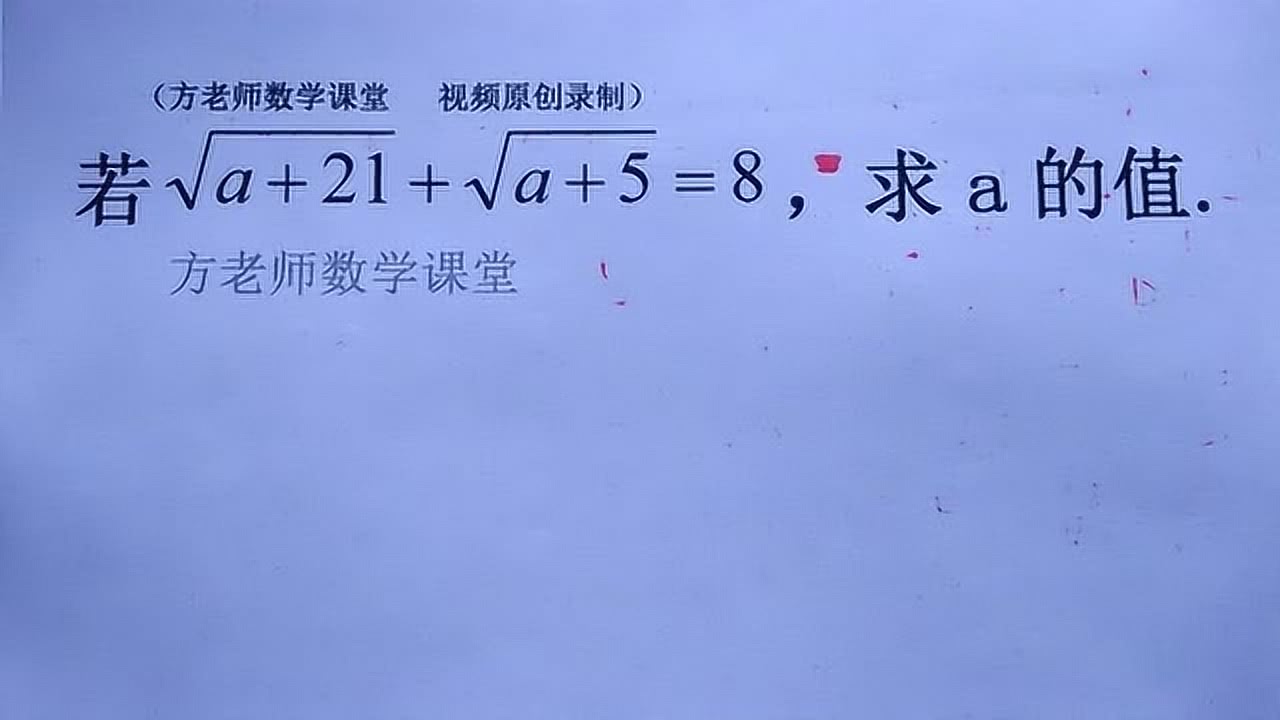 （方老师数学课堂 视频原创录制）
若√(a+21)+√(a+5)=8，求a的值.
方老师数学课堂